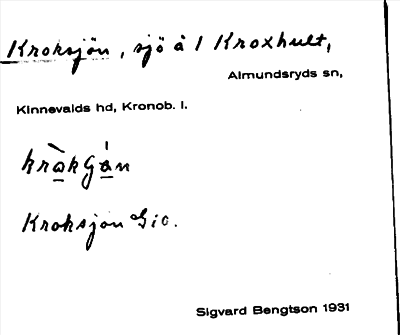 Kroksjön, sjö å 1 Kroxhult,
Almundsryds sn,
Kinnevalds hd, Kronob. l.
kràkgán
Kroksjön Gic.
Sigvard Bengtson 1931